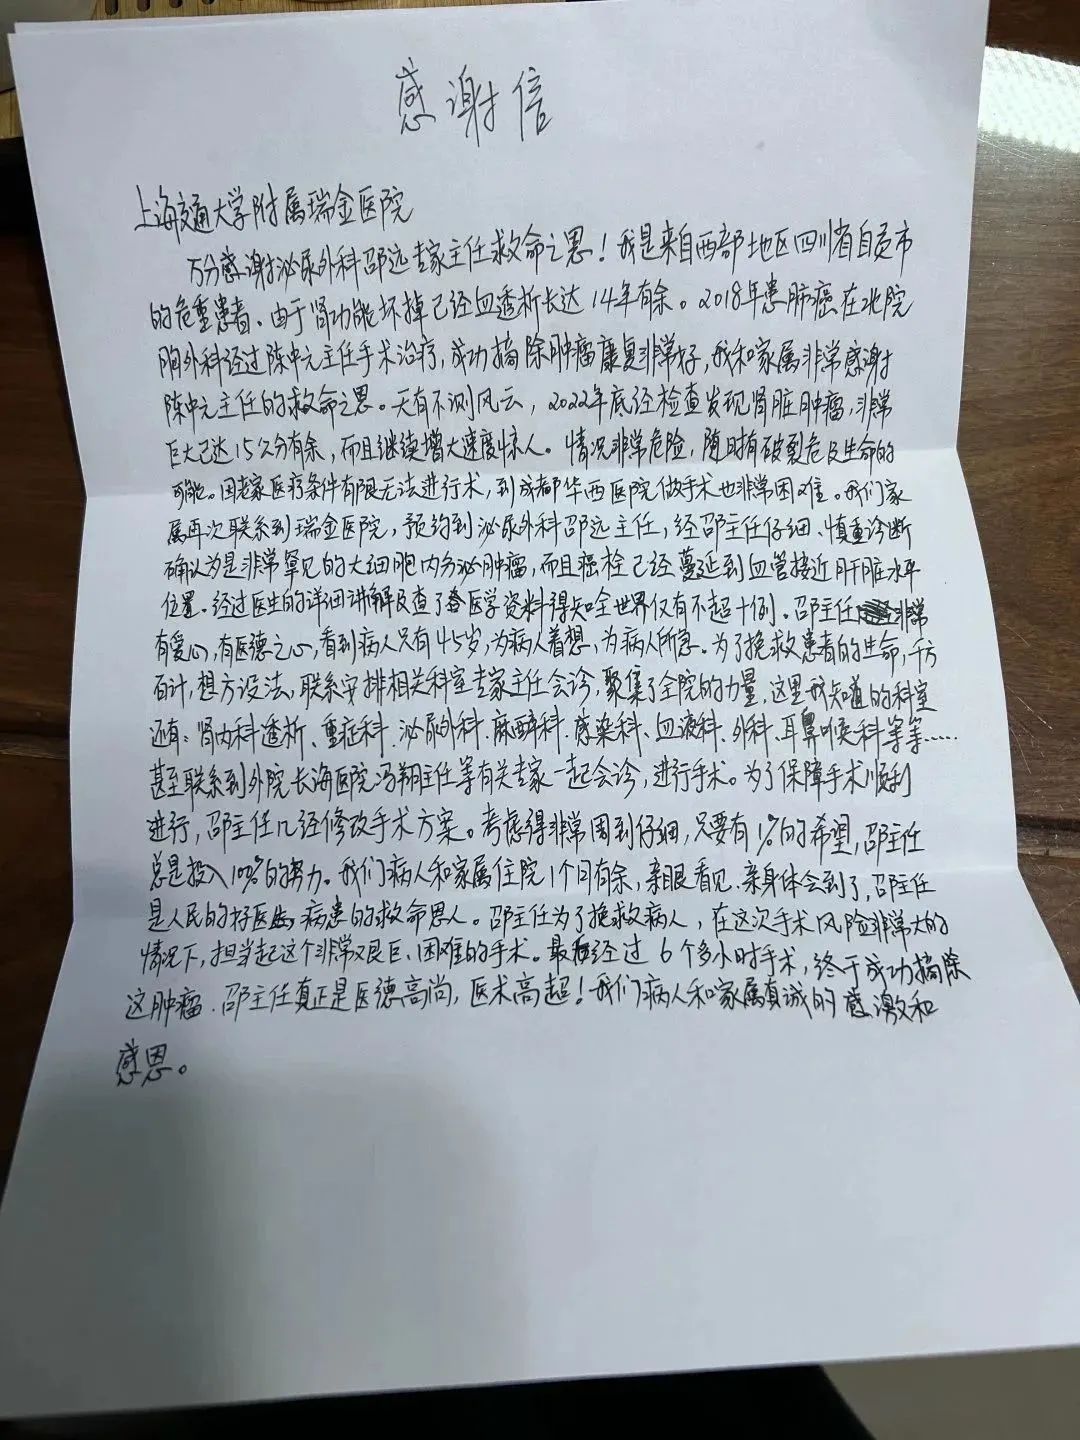 感谢信
上海交通大学附属瑞金医院
万分感谢泌尿外科邵远专家主任救命之恩！我是来自西部地区四川省自贡市
的危重患者、由于肾功能坏掉已经血透析长达14年有余。2018年患肺癌在北院
胸外科经过陈中元主任手术治疗，成功摘除肿瘤康复非常好，我和家属非常感谢
陈中元主任的救命之恩。天有不测风云，2022年底经检查发现肾脏肿瘤，非常
巨大已达15公分有余，而且继续增大速度惊人。情况非常危险，随时有破裂危及生命的
可能。因老家医疗条件有限无法进行术，到成都华西医院做手术也非常困难。我们家
属再次联系到瑞金医院，预约到泌尿外科邵远主任，经邵主任仔细、慎重诊断
确认为是非常罕见的大细胞内分泌肿瘤，而且癌栓已经蔓延到血管接近肝脏水平
位置。经过医生的详细讲解及查了医学资料得知全世界仅有不超十例。邵主任非常
有爱心，有医德之心，看到病人只有45岁，为病人着想，为病人所急。为了挽救患者的生命，千方
百计，想方设法，联系安排相关科室专家主任会诊，聚集了全院的力量，这里我知道的科室
还有：肾内科透析、重症科、泌尿外科、麻醉科、感染科、血液科、外科、耳鼻喉科等等……
甚至联系到外院长海医院冯翔主任等有关专家一起会诊，进行手术。为了保障手术顺利
进行，邵主任几经修改手术方案。考虑得非常周到仔细，只要有1%的希望，邵主任
总是投入100%的努力。我们病人和家属住院1个月有余，亲眼看见、亲身体会到了，邵主任
是人民的好医生，病患的救命恩人。邵主任为了挽救病人，在这次手术风险非常大的
情况下，担当起这个非常艰巨、困难的手术。最后经过6个多小时手术，终于成功摘除
这肿瘤。邵主任真正是医德高尚，医术高超！我们病人和家属真诚的感激和
感恩。